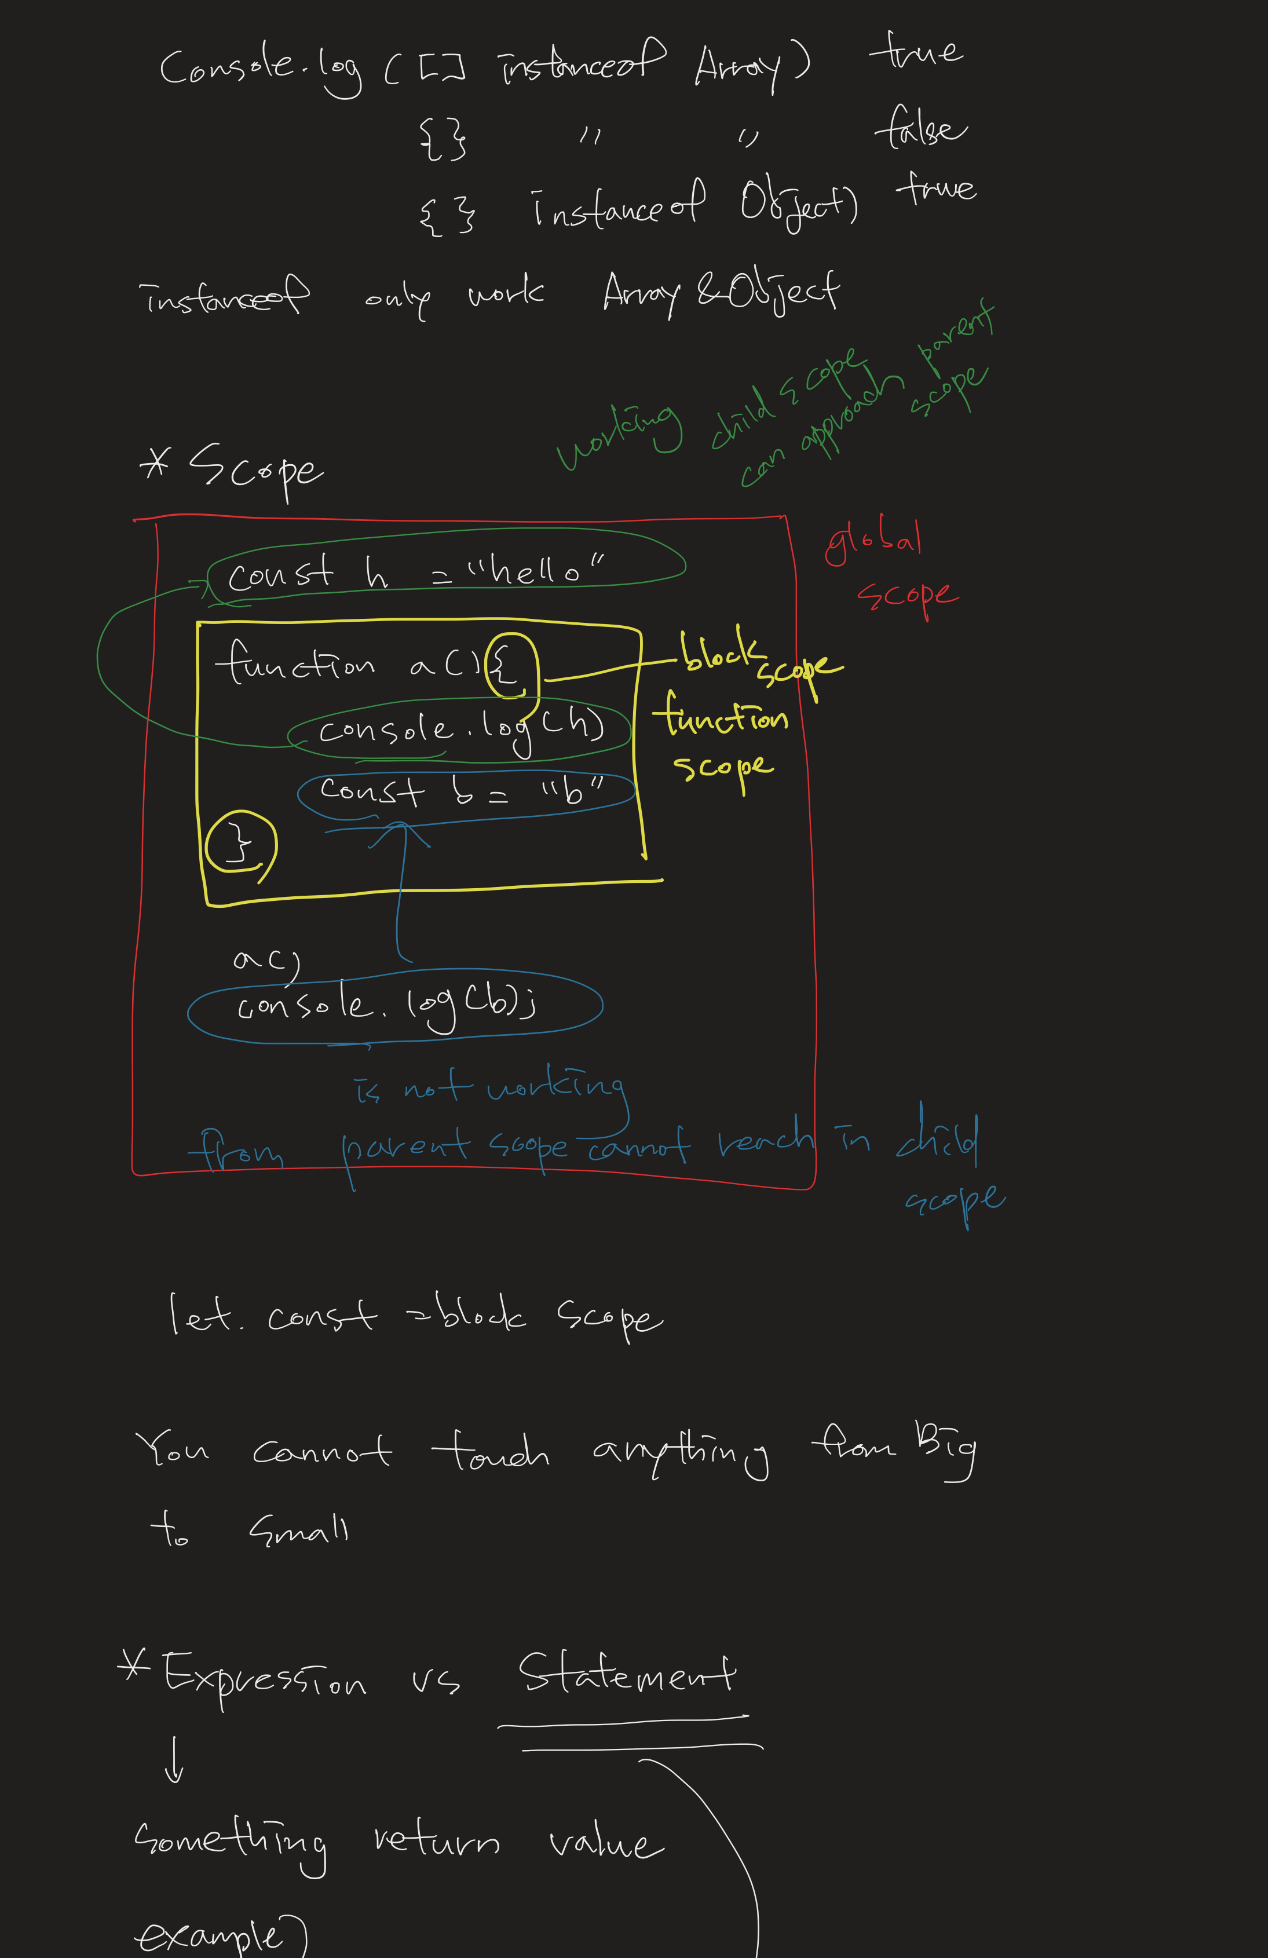 Console.log ([] instanceof Array) true
{} " " false
{} instanceof Object) true
instanceof only work Array & Object
working child scope can approach parent scope
* Scope
global scope
const h = "hello"
function a(){
block scope
console.log(h)
function scope
const b = "b"
}
a()
console.log(b);
is not working
from parent scope cannot reach in child scope
let. const = block scope
You cannot touch anything from Big
to small
* Expression vs Statement
↓
something return value
example)